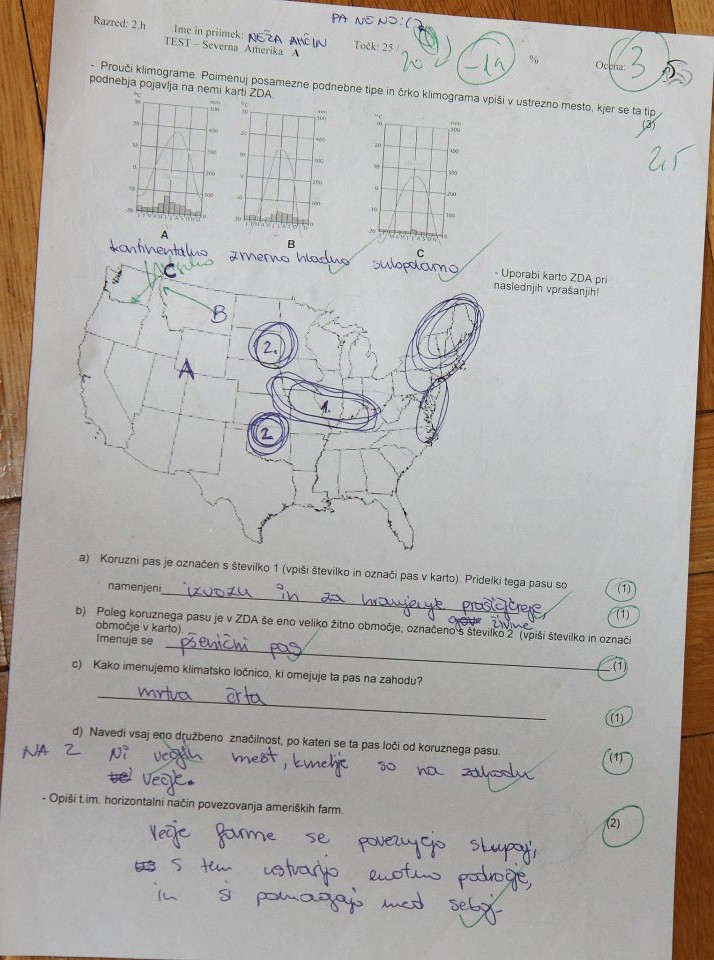 PA NE NO :(
Razred: 2.h Ime in priimek: NEŽA AHČIN Točk: 25 / 20 -1n % Ocena: 3
TEST – Severna Amerika A
- Prouči klimograme. Poimenuj posamezne podnebne tipe in črko klimograma vpiši v ustrezno mesto, kjer se ta tip
podnebja pojavlja na nemi karti ZDA. (3)
2,5
A B C
kontinentalno zmerno hladno subpolarno
- Uporabi karto ZDA pri
naslednjih vprašanjih!
C
B
A
2.
1.
2
a) Koruzni pas je označen s številko 1 (vpiši številko in označi pas v karto). Pridelki tega pasu so (1)
namenjeni izvozu in za hranjenje prašičjereje, (1)
živine
b) Poleg koruznega pasu je v ZDA še eno veliko žitno območje, označeno s številko 2 (vpiši številko in označi
območje v karto).
Imenuje se pšenični pas (1)
c) Kako imenujemo klimatsko ločnico, ki omejuje ta pas na zahodu?
mrtva črta (1)
d) Navedi vsaj eno družbeno značilnost, po kateri se ta pas loči od koruznega pasu.
NA Z Ni večjih mest, kmetije so na zahodu (1)
večje.
- Opiši t.im. horizontalni način povezovanja ameriških farm.
(2)
Večje farme se povezujejo skupaj,
s tem ustvarijo enotno področje,
in si pomagajo med seboj.